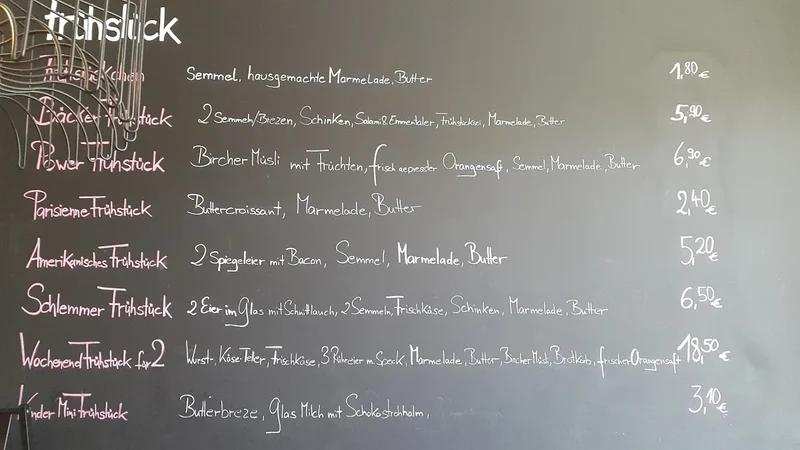 frühstück
Frühstückchen Semmel, hausgemachte Marmelade, Butter 1,80 €
Bäcker Frühstück 2 Semmeln/Brezen, Schinken, Salami & Emmentaler, Frühstücksei, Marmelade, Butter 5,90 €
Power Frühstück Bircher Müsli mit Früchten, frisch gepresster Orangensaft, Semmel, Marmelade, Butter 6,90 €
Parisienne Frühstück Buttercroissant, Marmelade, Butter 2,40 €
Amerikanisches Frühstück 2 Spiegeleier mit Bacon, Semmel, Marmelade, Butter 5,20 €
Schlemmer Frühstück 2 Eier im Glas mit Schnittlauch, 2 Semmeln, Frischkäse, Schinken, Marmelade, Butter 6,50 €
Wochenend Frühstück für 2 Wurst-, Käse-Teller, Frischkäse, 3 Rühreier m. Speck, Marmelade, Butter, Bircher Müsli, Brotkorb, frischer Orangensaft 18,50 €
Kinder Mini Frühstück Butterbreze, Glas Milch mit Schokostrohhalm, 3,10 €